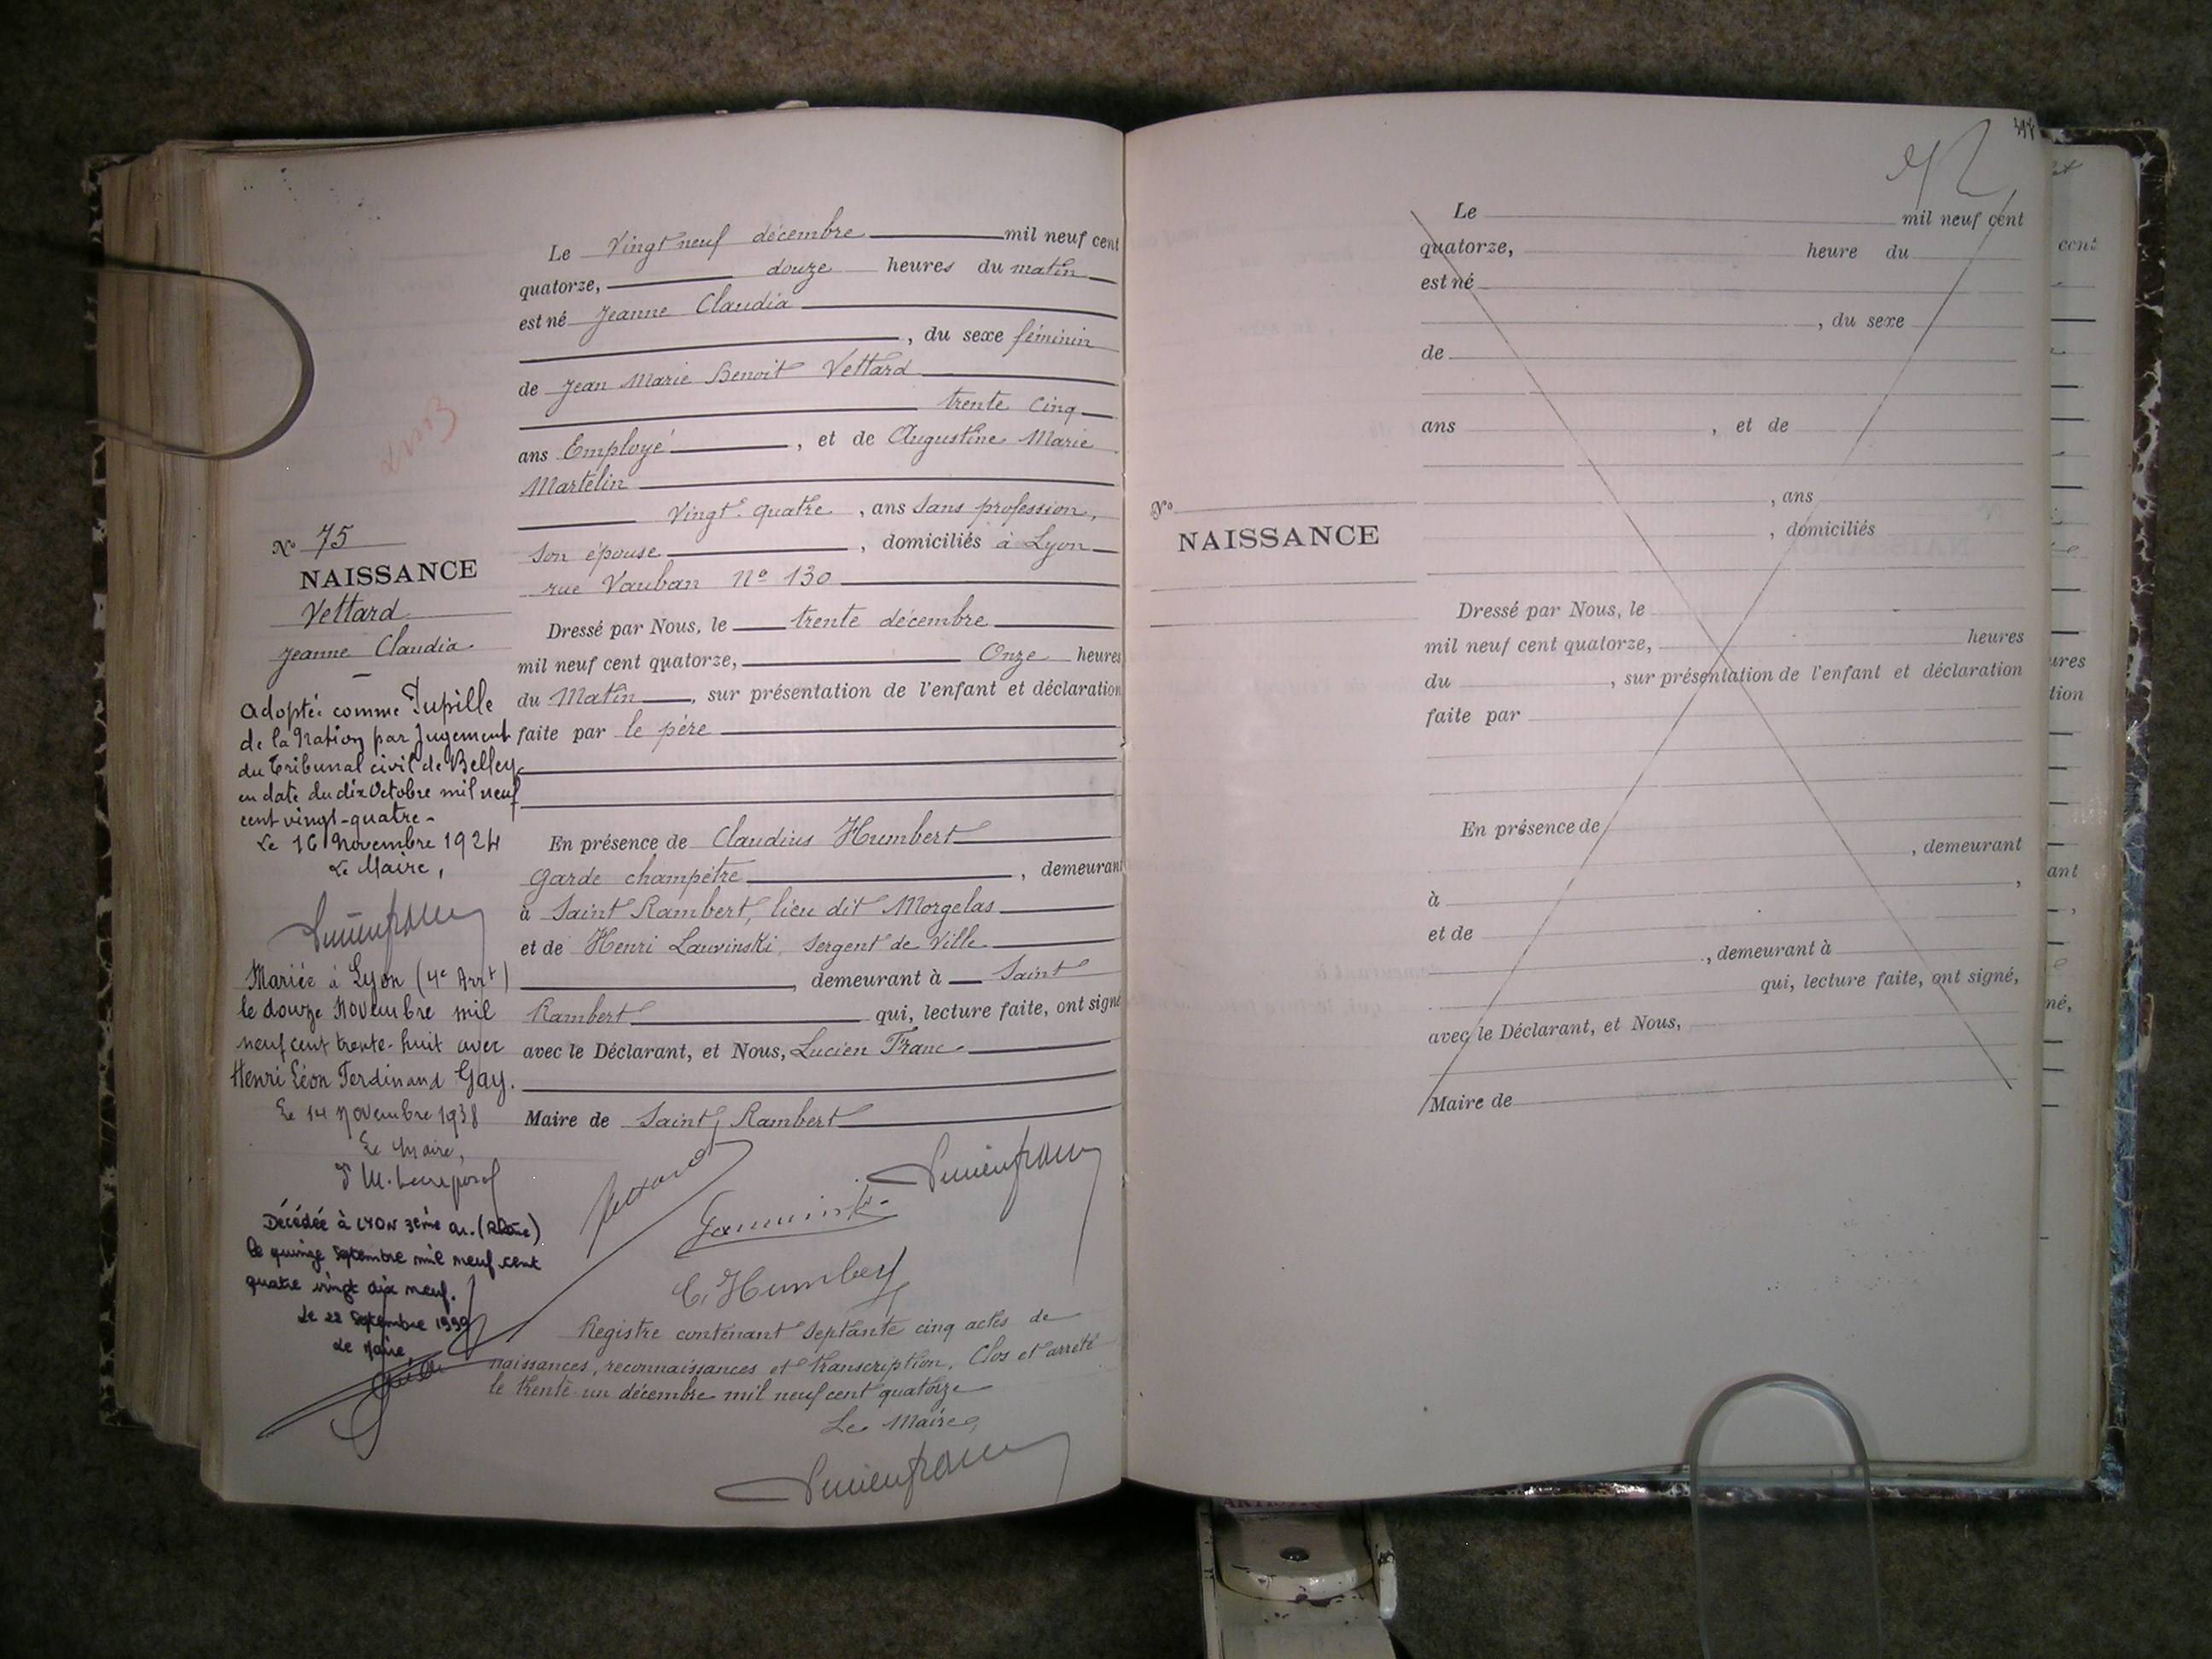 N° 75
NAISSANCE
Vettard
Jeanne Claudia
Adoptée comme Pupille
de la Nation par Jugement
du Tribunal civil de Belley
en date du dix Octobre mil neuf
cent vingt-quatre -
Le 16 Novembre 1924
Le Maire,
Lucien franc
Mariée à Lyon (4e Arrt)
le douze Novembre mil
neuf cent trente-huit avec
Henri Léon Ferdinand Gay.
Le 14 Novembre 1938
Le Maire,
Décédée à LYON 3ème ar. (Rhône)
le quinze septembre mil neuf cent
quatre vingt dix neuf.
Le 22 Septembre 1999
Le Maire,
Le Vingt neuf décembre mil neuf cent
quatorze, douze heures du matin
est né Jeanne Claudia
, du sexe féminin
de Jean Marie Benoit Vettard
trente cinq
ans Employé , et de Augustine Marie
Martelin
Vingt quatre , ans Sans profession,
Son épouse , domiciliés à Lyon
rue Vauban No 130
Dressé par Nous, le trente décembre
mil neuf cent quatorze, Onze heures
du Matin , sur présentation de l'enfant et déclaration
faite par le père
En présence de Claudius Humbert
Garde champêtre , demeurant
à Saint Rambert, lieu dit Morgelas
et de Henri Lauvinski, Sergent de Ville
, demeurant à Saint
Rambert qui, lecture faite, ont signé
avec le Déclarant, et Nous, Lucien Franc
Maire de Saint Rambert
Vettard
Lucien franc
C. Humbert
Registre contenant Septante cinq actes de
naissances, reconnaissances et transcription, Clos et arrêté
le trente un décembre mil neuf cent quatorze
Le Maire,
Lucien franc
N°
NAISSANCE
Le mil neuf cent
quatorze, heure du
est né
, du sexe
de
ans , et de
, ans
, domiciliés
Dressé par Nous, le
mil neuf cent quatorze, heures
du , sur présentation de l'enfant et déclaration
faite par
En présence de
, demeurant
à ,
et de
, demeurant à
qui, lecture faite, ont signé,
avec le Déclarant, et Nous,
Maire de
cent
ures
tion
ant
né,